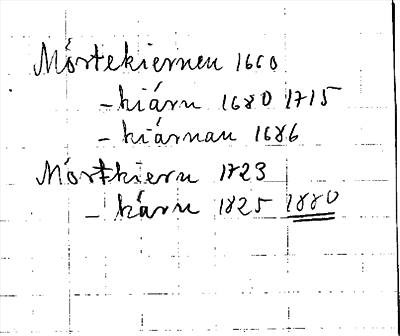 Mörtekiernen 1660
- kiärn 1680 1715
- kiärnan 1686
Mörtkiern 1723
- kärn 1825 1880